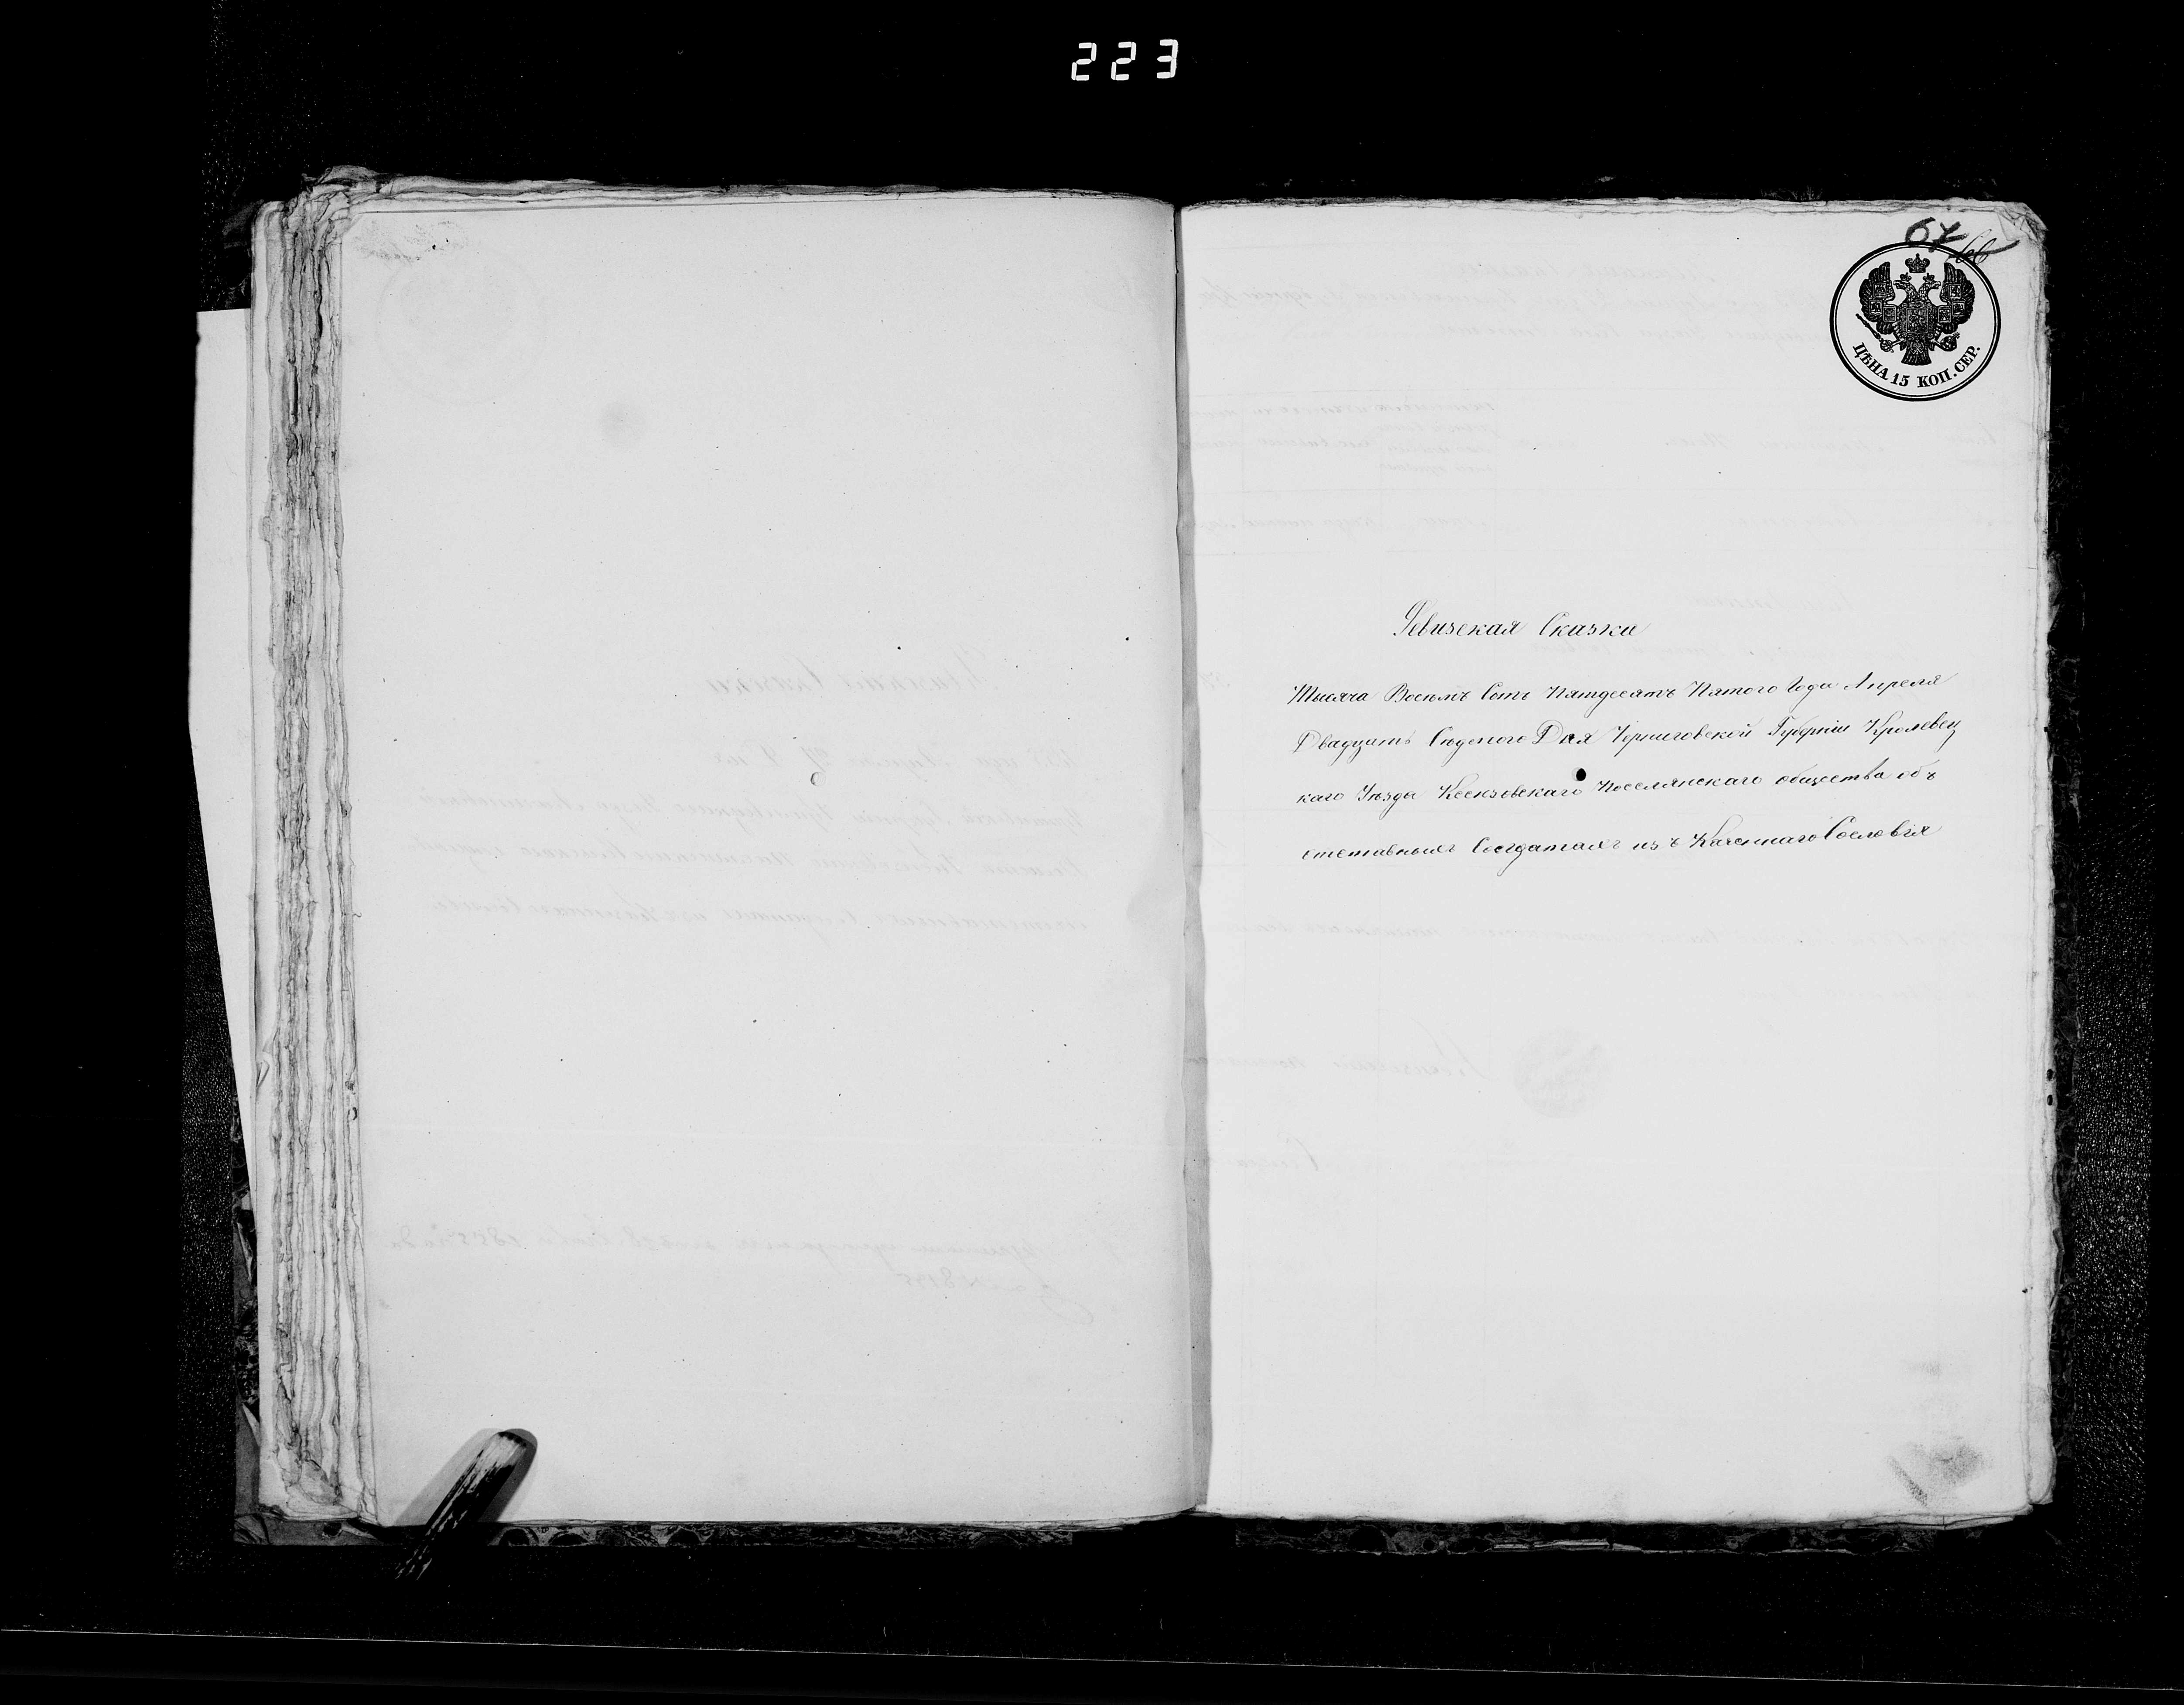 223
67
66
ЦѢНА 15 КОП. СЕР.
Ревизская Сказка
Тысяча Восемъ Сотъ Пятдесятъ Пятого Года Апреля
Двадцатъ Седмого Дня Черниговской Губерніи Кролевец
каго Уѣзда Ксензовскаго Поселянскаго общества объ
отставныхъ Солдатахъ изъ Казеннаго Сословія